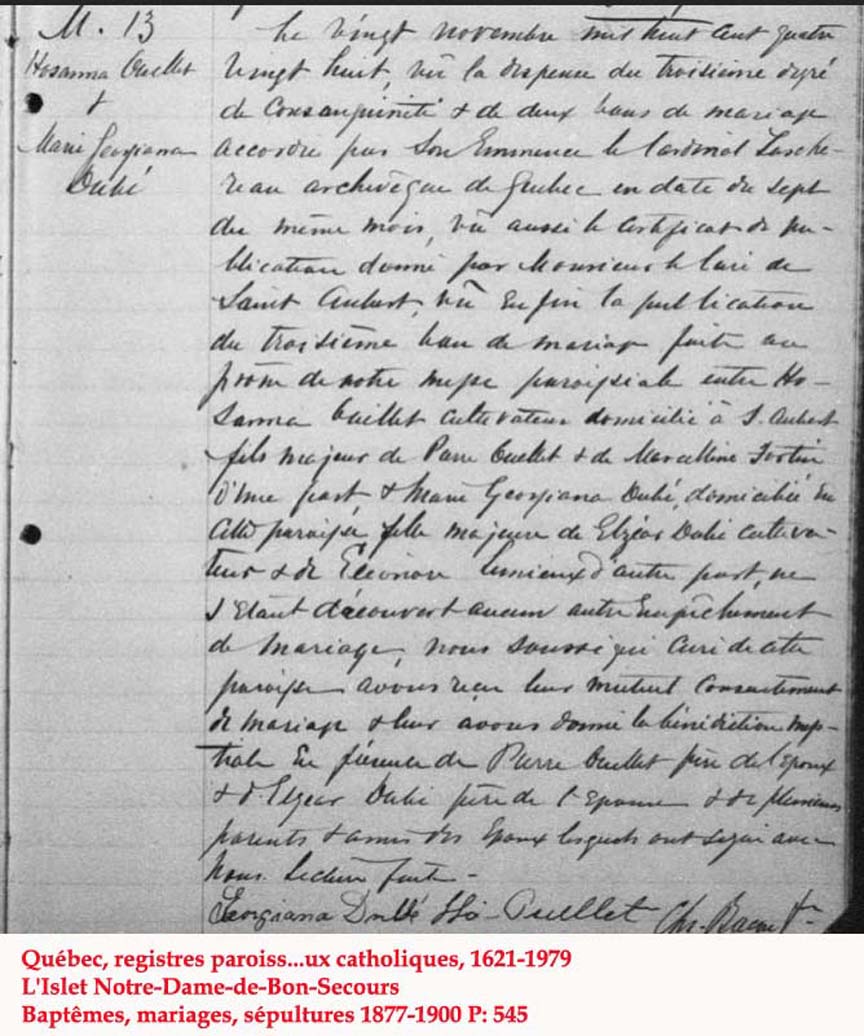 M. 13
Hosanna Ouellet
&
Marie Georgiana
Dubé
Le vingt novembre mil huit cent quatre
vingt huit, vû la dispense du troisième degré
de Consanguinité & de deux bans de mariage
accordée par Son Eminence le Cardinal Tasche-
reau archevêque de Quebec en date du sept
du même mois, vû aussi le certificat de pu-
blication donné par Monsieur le Curé de
Saint Aubert, vû enfin la publication
du troisième ban de mariage faite au
prône de notre messe paroissiale entre Ho-
sanna Ouellet cultivateur domicilié à S. Aubert
fils majeur de Pierre Ouellet & de Marcelline Fortin
d'une part, & Marie Georgiana Dubé, domiciliée en
cette paroisse, fille majeure de Elzéar Dubé cultiva-
teur & de Eléonore Lemieux d'autre part, ne
s'étant découvert aucun autre empêchement
de mariage, nous soussigné Curé de cette
paroisse avons reçu leur mutuel consentement
de mariage & leur avons donné la bénédiction nup-
tiale en présence de Pierre Ouellet père de l'Epoux
& d'Elzear Dubé père de l'Epouse & de plusieurs
parents & amis des Epoux lesquels ont signé avec
Nous. Lecture faite -
Georgiana Dubé Ho- Ouellet Chs. Bacon Ptre
Québec, registres paroiss...ux catholiques, 1621-1979
L'Islet Notre-Dame-de-Bon-Secours
Baptêmes, mariages, sépultures 1877-1900 P: 545